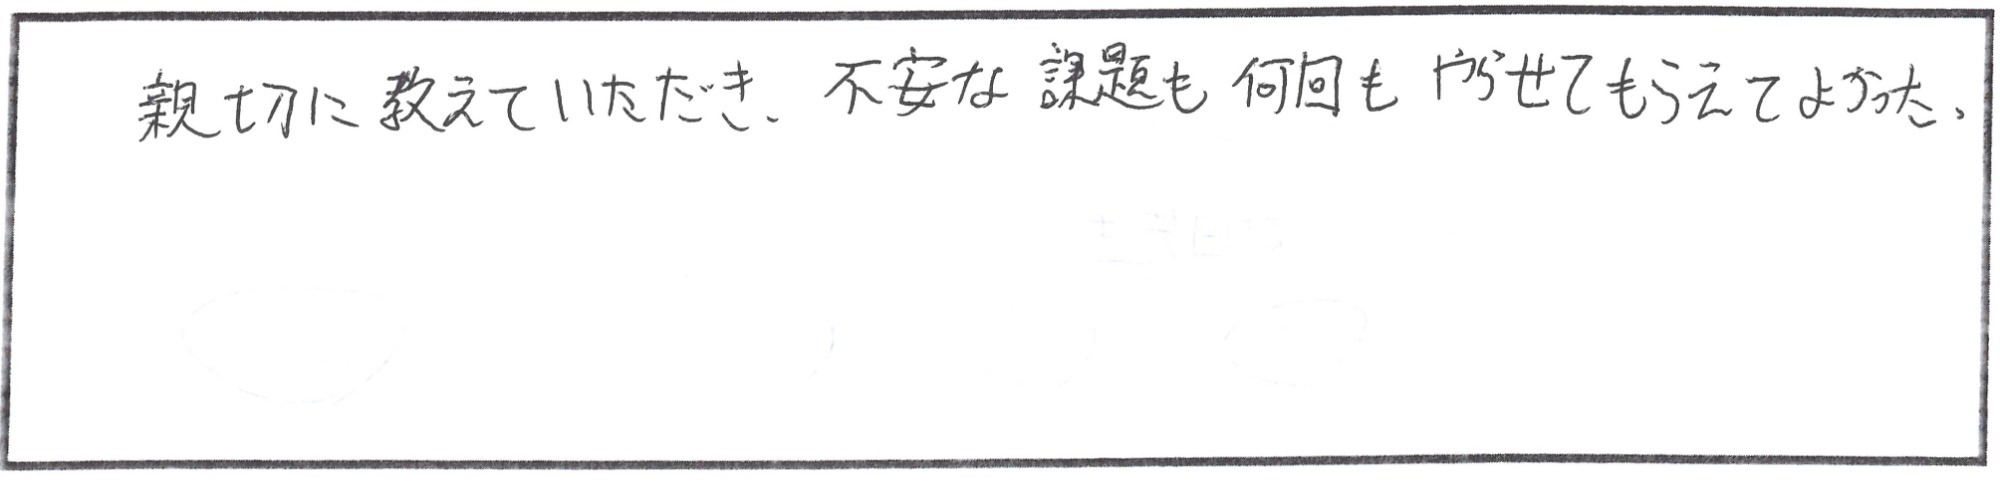 親切に教えていただき、不安な課題も何回もやらせてもらえてよかった。